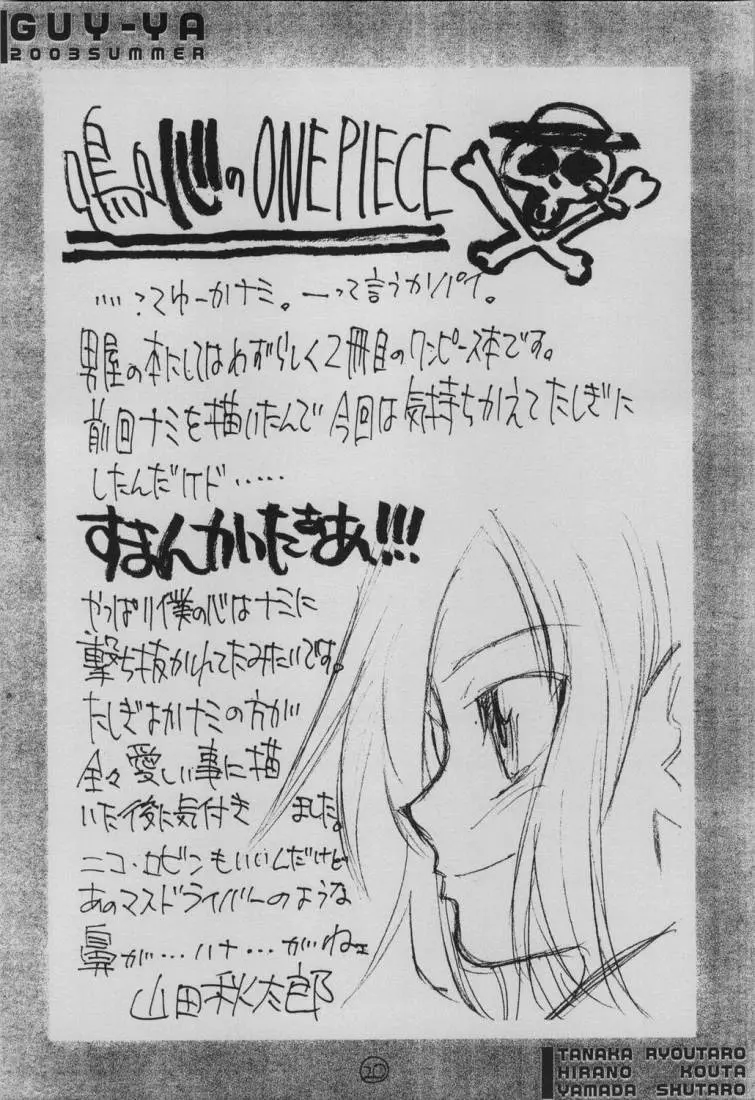 GUY-YA
2003SUMMER
のONE PIECE
‥‥‥てゆーかナミ。―って言うかリパイ。
男屋の本にしてはめずらしく2冊目のワンピース本です。
前回ナミを描いたんで今回は気持ちかえてたしぎに
したんだけド……
すまんかいたきあん!!!
やっぱり僕の心はナミに
撃ち抜かれてたみたいです。
たしぎよかナミの方が
全々愛しい事に描
いた後に気付き ました。
ニコ・ロビンもいいんだけど
あのマスドライバーのような
鼻が…ハナ…がねェ
山田秋太郎
20
TANAKA RYOUTARO
HIRANO KOUTA
YAMADA SHUTARO